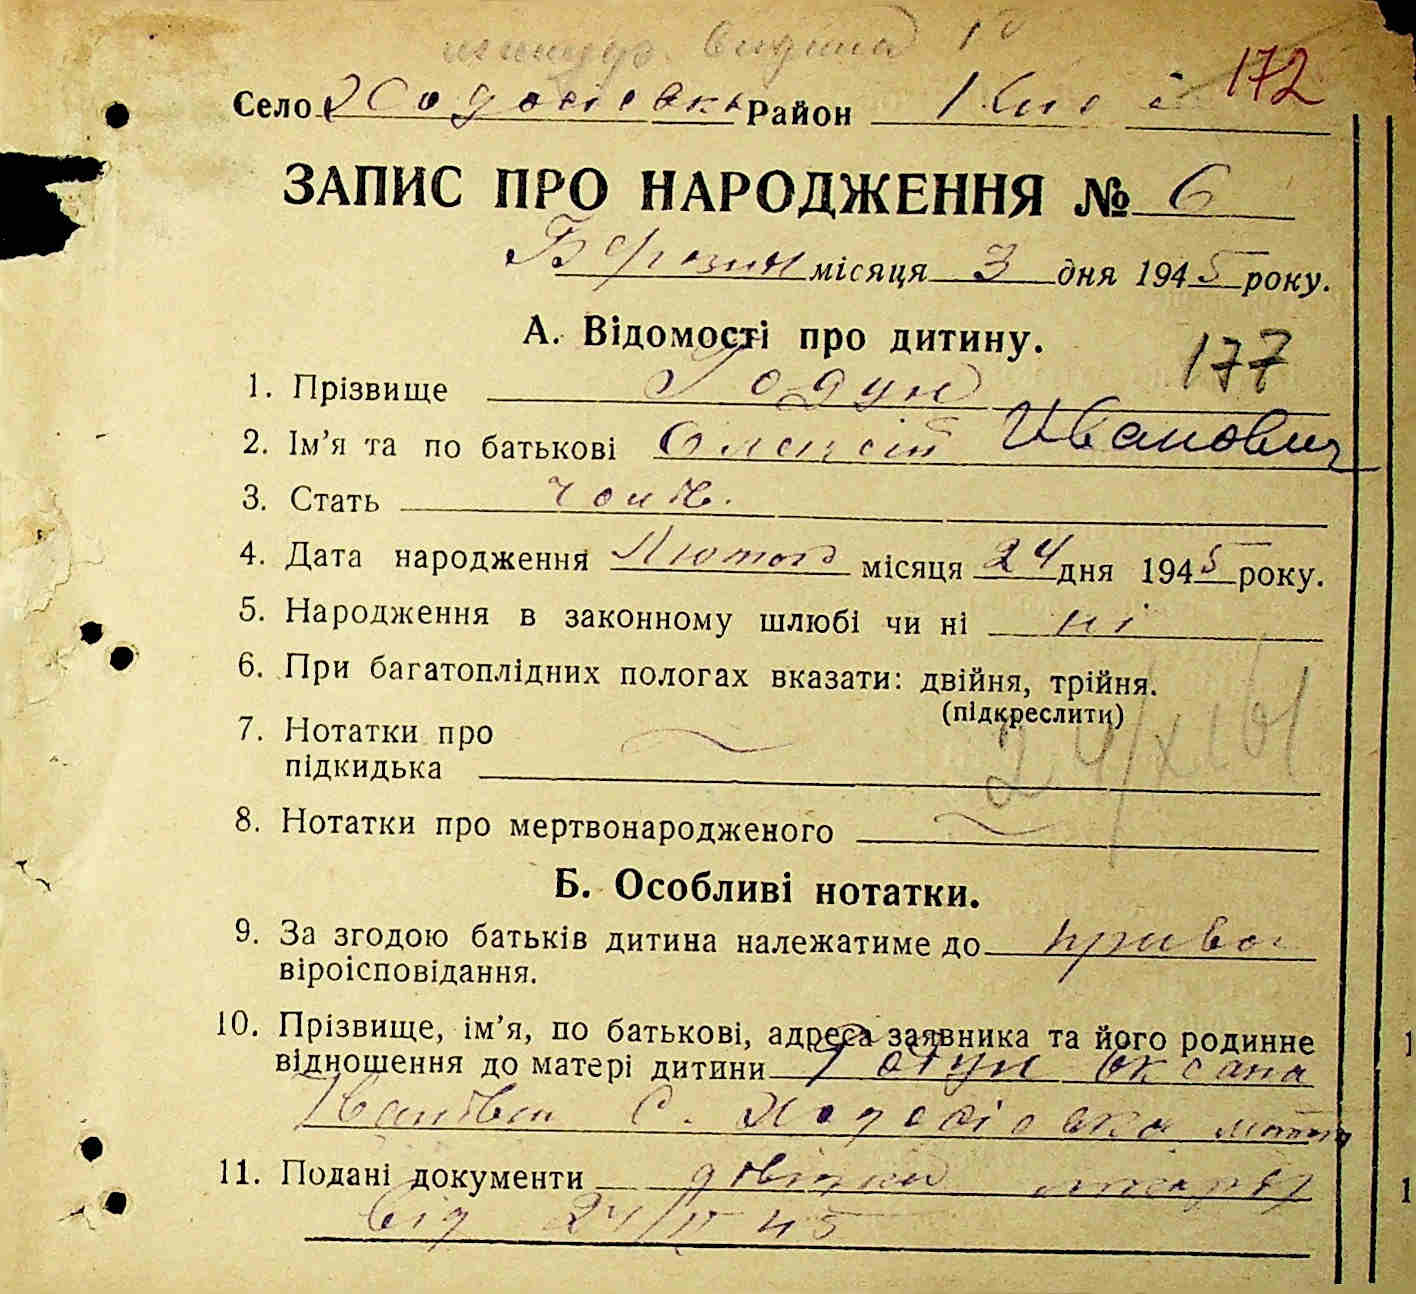 видана
172
Село Ходосівка Район Київ
ЗАПИС ПРО НАРОДЖЕННЯ № 6
Березня місяця 3 дня 1945 року.
А. Відомості про дитину.
177
1. Прізвище Годун
2. Ім'я та по батькові Олексій Иванович
3. Стать чолов.
4. Дата народження Лютого місяця 24 дня 1945 року.
5. Народження в законному шлюбі чи ні ні
6. При багатоплідних пологах вказати: двійня, трійня.
(підкреслити)
7. Нотатки про
підкидька
8. Нотатки про мертвонародженого
Б. Особливі нотатки.
9. За згодою батьків дитина належатиме до
віроісповідання.
10. Прізвище, ім'я, по батькові, адреса заявника та його родинне
відношення до матері дитини Годун Оксана
Іванівна С. Ходосівка мати
11. Подані документи довідка
від 24/II 45